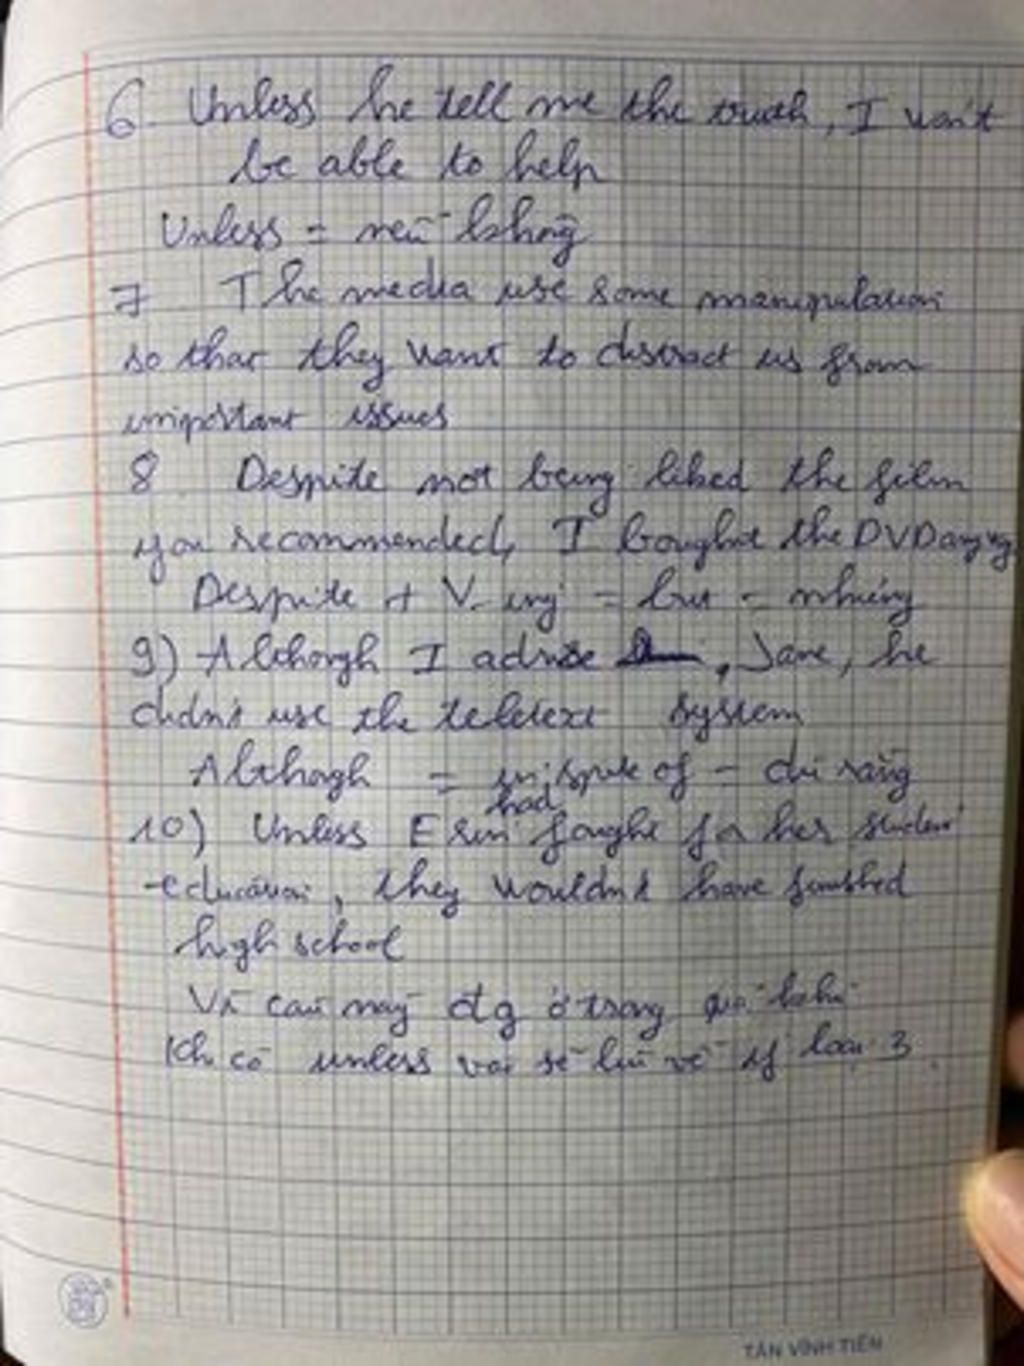 6. Unless he tell me the truth, I won't
be able to help
Unless = nếu không
7 The media use some manipulation
so that they want to distract us from
important issues
8. Despite not being liked the film
you recommended, I bought the DVD anyway
Despite + V-ing = but = nhưng
9) Although I advise , Jane, he
didn't use the teletext system
Although = in spite of - dù rằng
had
10) Unless Erin fought for her student
-education, they wouldn't have finished
high school
Vì câu này đg ở trong quá khứ
Khi có unless vào sẽ lùi về if loại 3.
TÂN VĨNH TIẾN